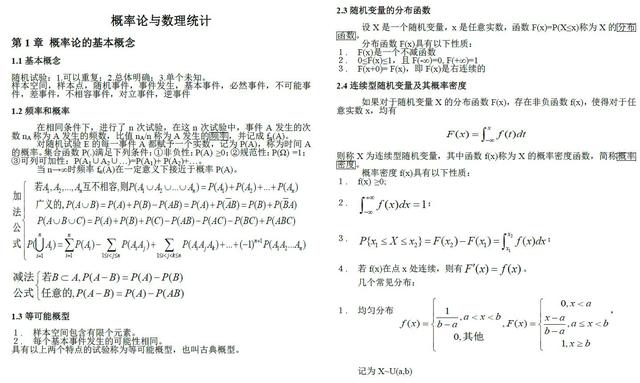 概率论与数理统计
第 1 章 概率论的基本概念
1.1 基本概念
随机试验：1.可以重复；2.总体明确；3.单个未知。
样本空间，样本点，随机事件，事件发生，基本事件，必然事件，不可能事
件，差事件，不相容事件，对立事件，逆事件
1.2 频率和概率
在相同条件下，进行了 n 次试验，在这 n 次试验中，事件 A 发生的次
数 nA 称为 A 发生的频数，比值 nA/n 称为 A 发生的频率，并记成 fn(A)。
对随机试验 E 的每一事件 A 都赋予一个实数，记为 P(A)，称为时间 A
的概率。集合函数 P(.)满足下列条件：①非负性：P(A) ≥0；②规范性：P(Ω) =1；
③可列可加性：P(A1∪A2∪…)=P(A1)+ P(A2)+…。
当 n→∞时频率 fn(A)在一定意义下接近于概率 P(A)。
加法公式
若A1,A2,...,An互不相容,则P(A1∪A2∪...∪An) = P(A1)+P(A2)+...+P(An)
广义的,P(A∪B) = P(A)+P(B)-P(AB) = P(A)+P(A̅B) = P(B)+P(B̅A)
P(A∪B∪C) = P(A)+P(B)+P(C)-P(AB)-P(AC)-P(BC)+P(ABC)
P(⋃_{i=1}^{n} Ai) = ∑_{i=1}^{n} P(Ai) - ∑_{1≤i<j≤n} P(AiAj) + ∑_{1≤i<j<k≤n} P(AiAjAk)+...+(-1)^{n+1}P(A1A2...An)
减法公式
若B⊂A,P(A-B) = P(A)-P(B)
任意的,P(A-B) = P(A)-P(AB)
1.3 等可能概型
1. 样本空间包含有限个元素。
2. 每个基本事件发生的可能性相同。
具有以上两个特点的试验称为等可能概型，也叫古典概型。
2.3 随机变量的分布函数
设 X 是一个随机变量，x 是任意实数，函数 F(x)=P(X≤x)称为 X 的分布
函数。
分布函数 F(x)具有以下性质：
1. F(x)是一个不减函数
2. 0≤F(x)≤1，且 F(-∞)=0, F(+∞)=1
3. F(x+0)= F(x)，即 F(x)是右连续的
2.4 连续型随机变量及其概率密度
如果对于随机变量 X 的分布函数 F(x)，存在非负函数 f(x)，使得对于任
意实数 x，均有
F(x) = ∫_{-∞}^{x} f(t)dt
则称 X 为连续型随机变量，其中函数 f(x)称为 X 的概率密度函数，简称概率
密度。
概率密度 f(x)具有以下性质：
1. f(x) ≥0;
2. ∫_{-∞}^{+∞} f(x)dx = 1;
3. P{x1 ≤ X ≤ x2} = F(x2) - F(x1) = ∫_{x1}^{x2} f(x)dx;
4. 若 f(x)在点 x 处连续，则有 F'(x) = f(x)。
几个常见分布：
1. 均匀分布 f(x) = { 1/(b-a), a < x < b; 0, 其他 , F(x) = { 0, x < a; (x-a)/(b-a), a ≤ x < b; 1, x ≥ b ,
记为 X~U(a,b)